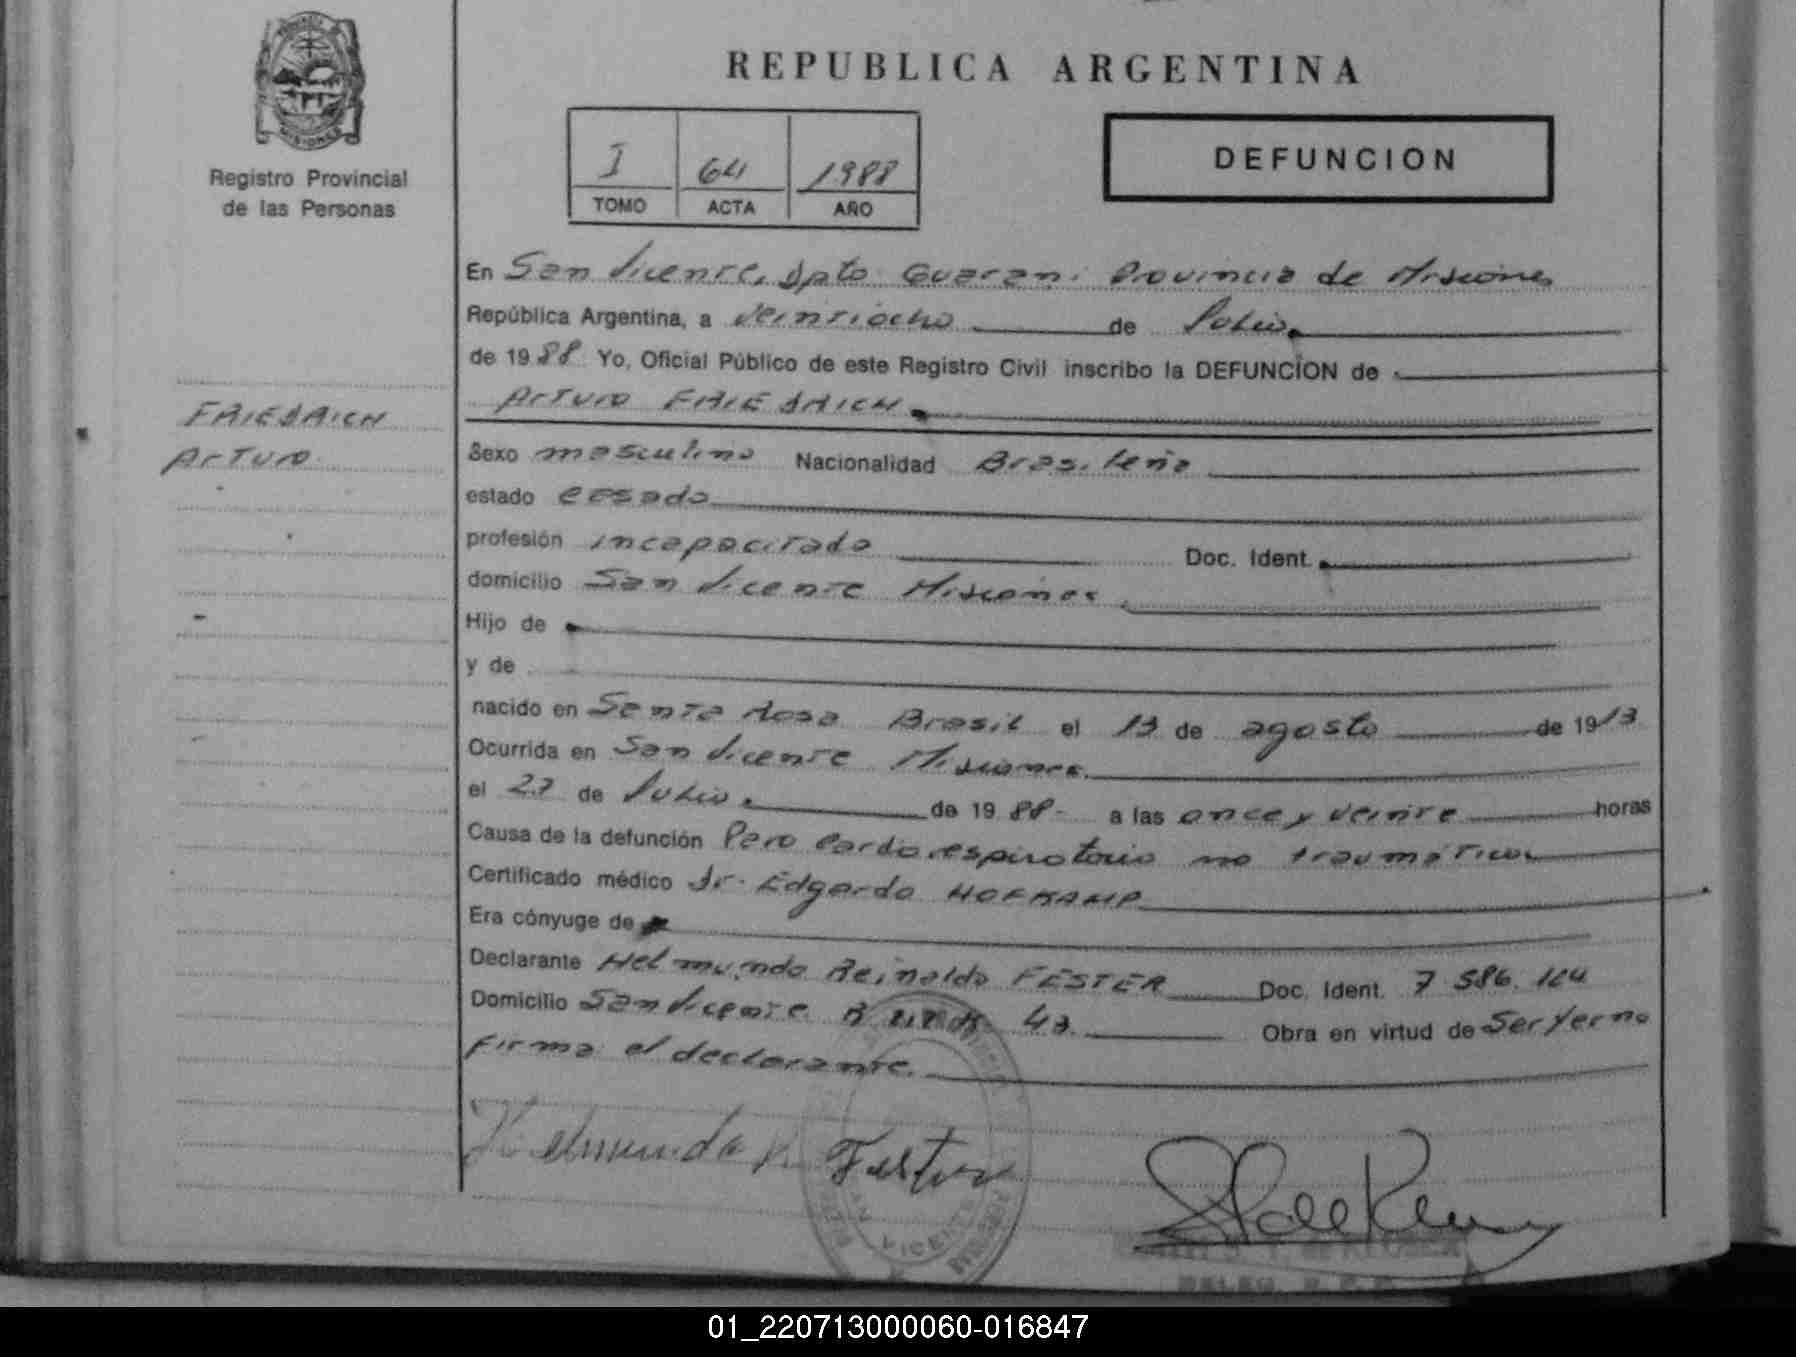 REPUBLICA ARGENTINA
MISIONES
Registro Provincial
de las Personas
I 64 1988
TOMO ACTA AÑO
DEFUNCION
En San Vicente, Dpto Guarani Provincia de Misiones
República Argentina, a Veintiocho de Julio
de 1988 Yo, Oficial Público de este Registro Civil inscribo la DEFUNCION de
Arturo FRIEDRICH
FRIEDRICH
Arturo
Sexo masculino Nacionalidad Brasileña
estado casado
profesión incapacitado Doc. Ident.
domicilio San Vicente Misiones
Hijo de
y de
nacido en Santa Rosa Brasil el 13 de agosto de 1913
Ocurrida en San Vicente Misiones
el 27 de Julio de 1988 a las once y veinte horas
Causa de la defunción Paro Cardiorespiratorio no traumático
Certificado médico Dr. Edgardo HOFKAMP
Era cónyuge de
Declarante Helmundo Reinaldo FESTER Doc. Ident. 7 586. 164
Domicilio San Vicente Obra en virtud de Ser Yerno
firma el declarante.
Helmundo R Fester
VICENTE
01_220713000060-016847